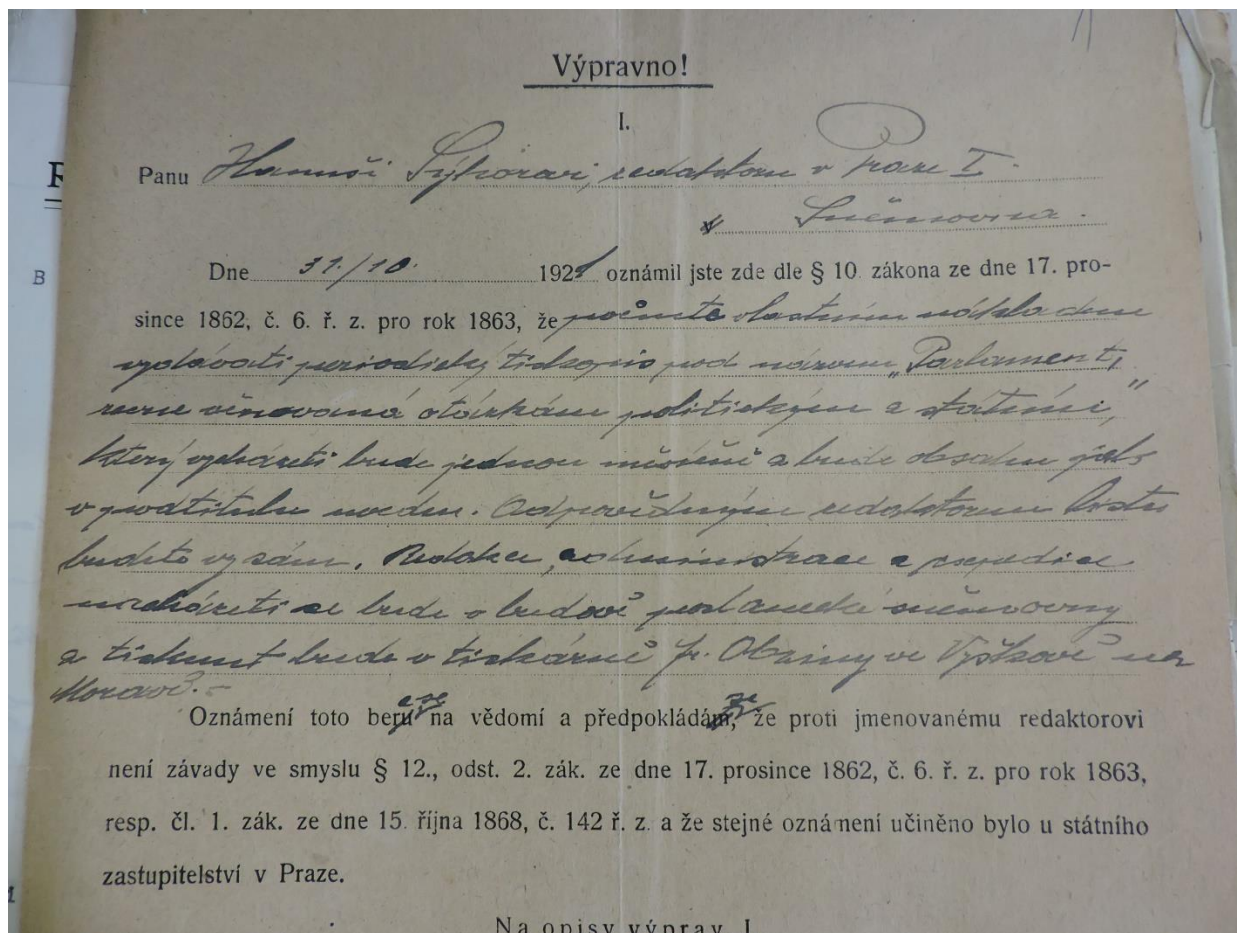 Výpravno!
I.
Panu Hanuši Sýkorovi, redaktoru v Praze I.
Sněmovna.
Dne 31./10. 1921 oznámil jste zde dle § 10. zákona ze dne 17. pro-
since 1862, č. 6. ř. z. pro rok 1863, že počnete vlastním nákladem
vydávati periodický tiskopis pod názvem „Parlament,
revue věnovaná otázkám politickým a státním,"
který vycházeti bude jednou měsíčně a bude obsahu jak
v podtitulu uveden. Odpovědným redaktorem listu
budete vy sám. Redakce, administrace a expedice
nacházeti se bude v budově poslanecké sněmovny
a tisknut bude v tiskárně Fr. Obziny ve Vyškově na
Moravě.-
Oznámení toto bere se na vědomí a předpokládá se, že proti jmenovanému redaktorovi
není závady ve smyslu § 12., odst. 2. zák. ze dne 17. prosince 1862, č. 6. ř. z. pro rok 1863,
resp. čl. 1. zák. ze dne 15. října 1868, č. 142 ř. z. a že stejné oznámení učiněno bylo u státního
zastupitelství v Praze.
Na opisy výprav I.